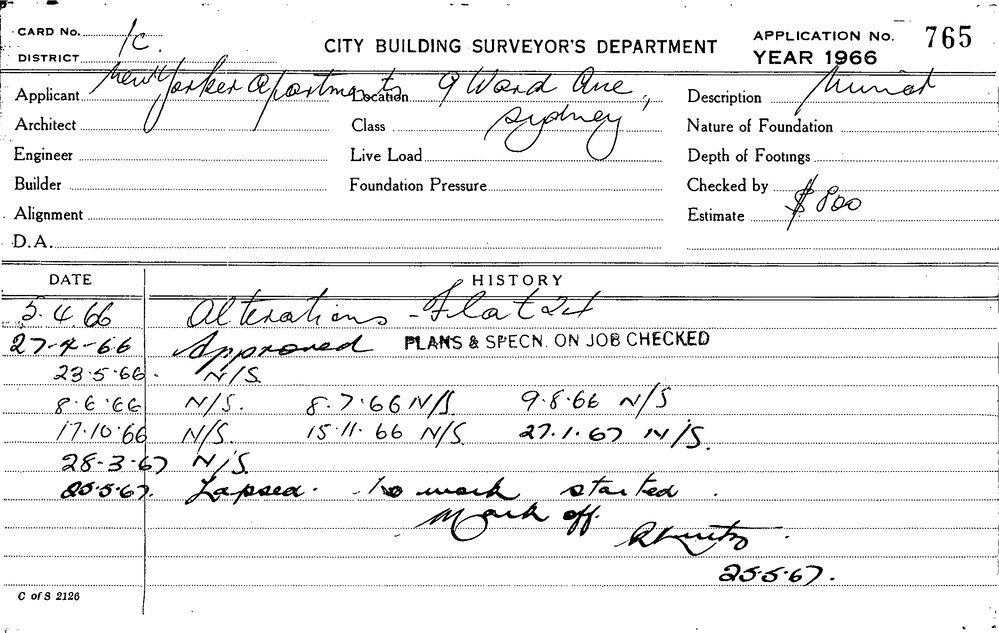 CARD No. 1c.
CITY BUILDING SURVEYOR'S DEPARTMENT
APPLICATION No. 765
DISTRICT
YEAR 1966
Applicant New Yorker Apartments
Location 9 Ward Ave,
Sydney
Description Minor
Architect
Class
Nature of Foundation
Engineer
Live Load
Depth of Footings
Builder
Foundation Pressure
Checked by
Alignment
Estimate $800
D.A.
DATE HISTORY
5.4.66 Alterations - Flat 24
27-4-66 Approved PLANS & SPECN. ON JOB CHECKED
23.5.66. N/S.
8.6.66 N/S. 8.7.66 N/S. 9.8.66 N/S
17.10.66 N/S. 15.11.66 N/S. 27.1.67 N/S.
28-3-67 N/S.
25.5.67. Lapsed. No work started.
Mark off.
25.5.67.
C of S 2126